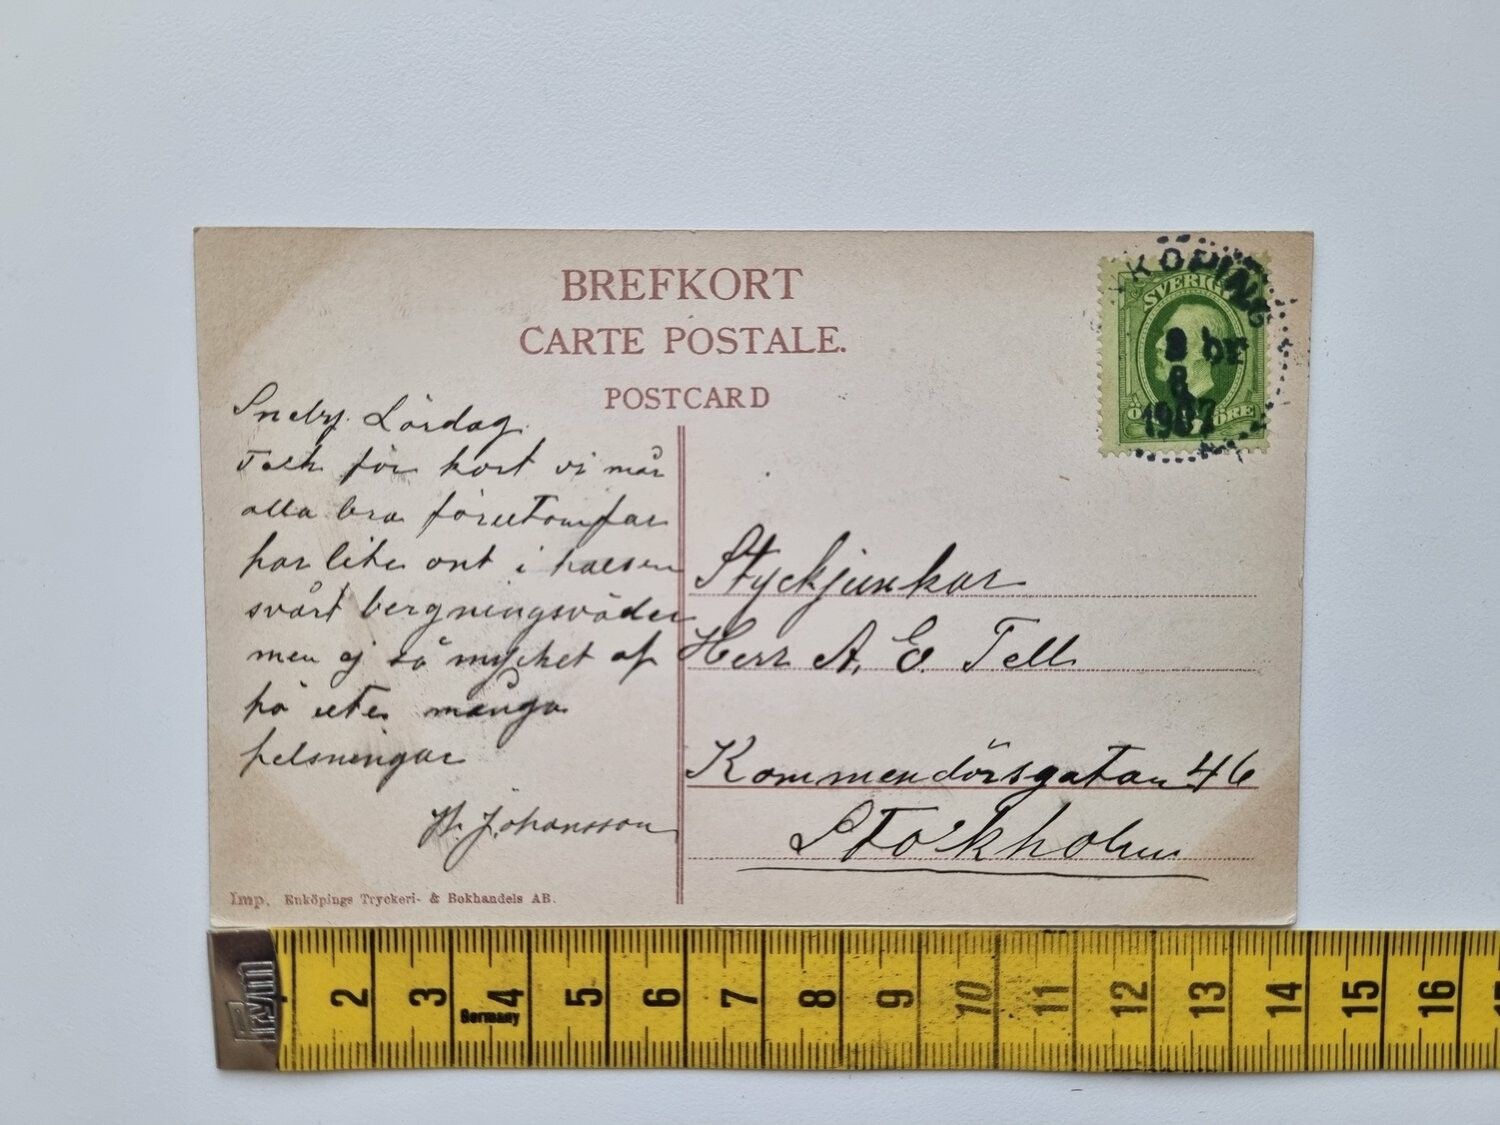 BREFKORT
CARTE POSTALE.
POSTCARD
Lördag
Tack för kort vi mår
alla bra förutom far
har lite ont i halsen
svårt bergningsväder
men ej så mycket af
hö ute många
helsningar
H. Johansson
Imp. Enköpings Tryckeri- & Bokhandels AB.
KÖPING
8
1907
SVERIGE
ÖRE
Styckjunkar
Herr A. E. Tell
Kommendörsgatan 46
Stockholm
Prym
2 3 4 5 6 7 8 9 10 11 12 13 14 15 16
Germany